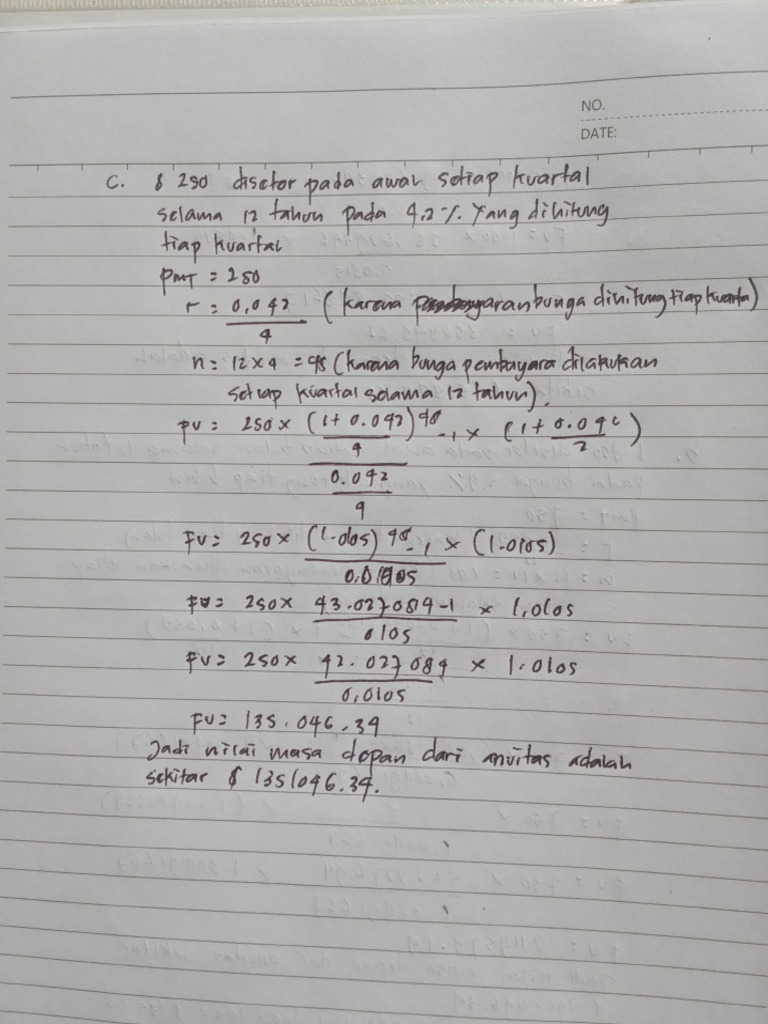 NO.
DATE:
C. $ 250 disetor pada awal setiap kuartal
selama 12 tahun pada 4,2%. Yang dihitung
tiap kuartal
PMT = 250
r = 0,042 / 4 (karena bunga dihitung tiap kuartal)
n = 12 x 4 = 48 (karena bunga pembayara dilakukan
setiap kuartal selama 12 tahun).
FV = 250 x (1 + 0.042 / 4)48 - 1 / 0.042 / 4 x (1 + 0.042 / 2)
FV = 250 x (1.0105) 48 - 1 / 0.0105 x (1.0105)
FV = 250 x 43.027084-1 / 0105 x 1,0105
FV = 250 x 42.027084 / 0,0105 x 1.0105
FV = 135.046.34
Jadi nilai masa depan dari anuitas adalah
sekitar $ 135.046.34.